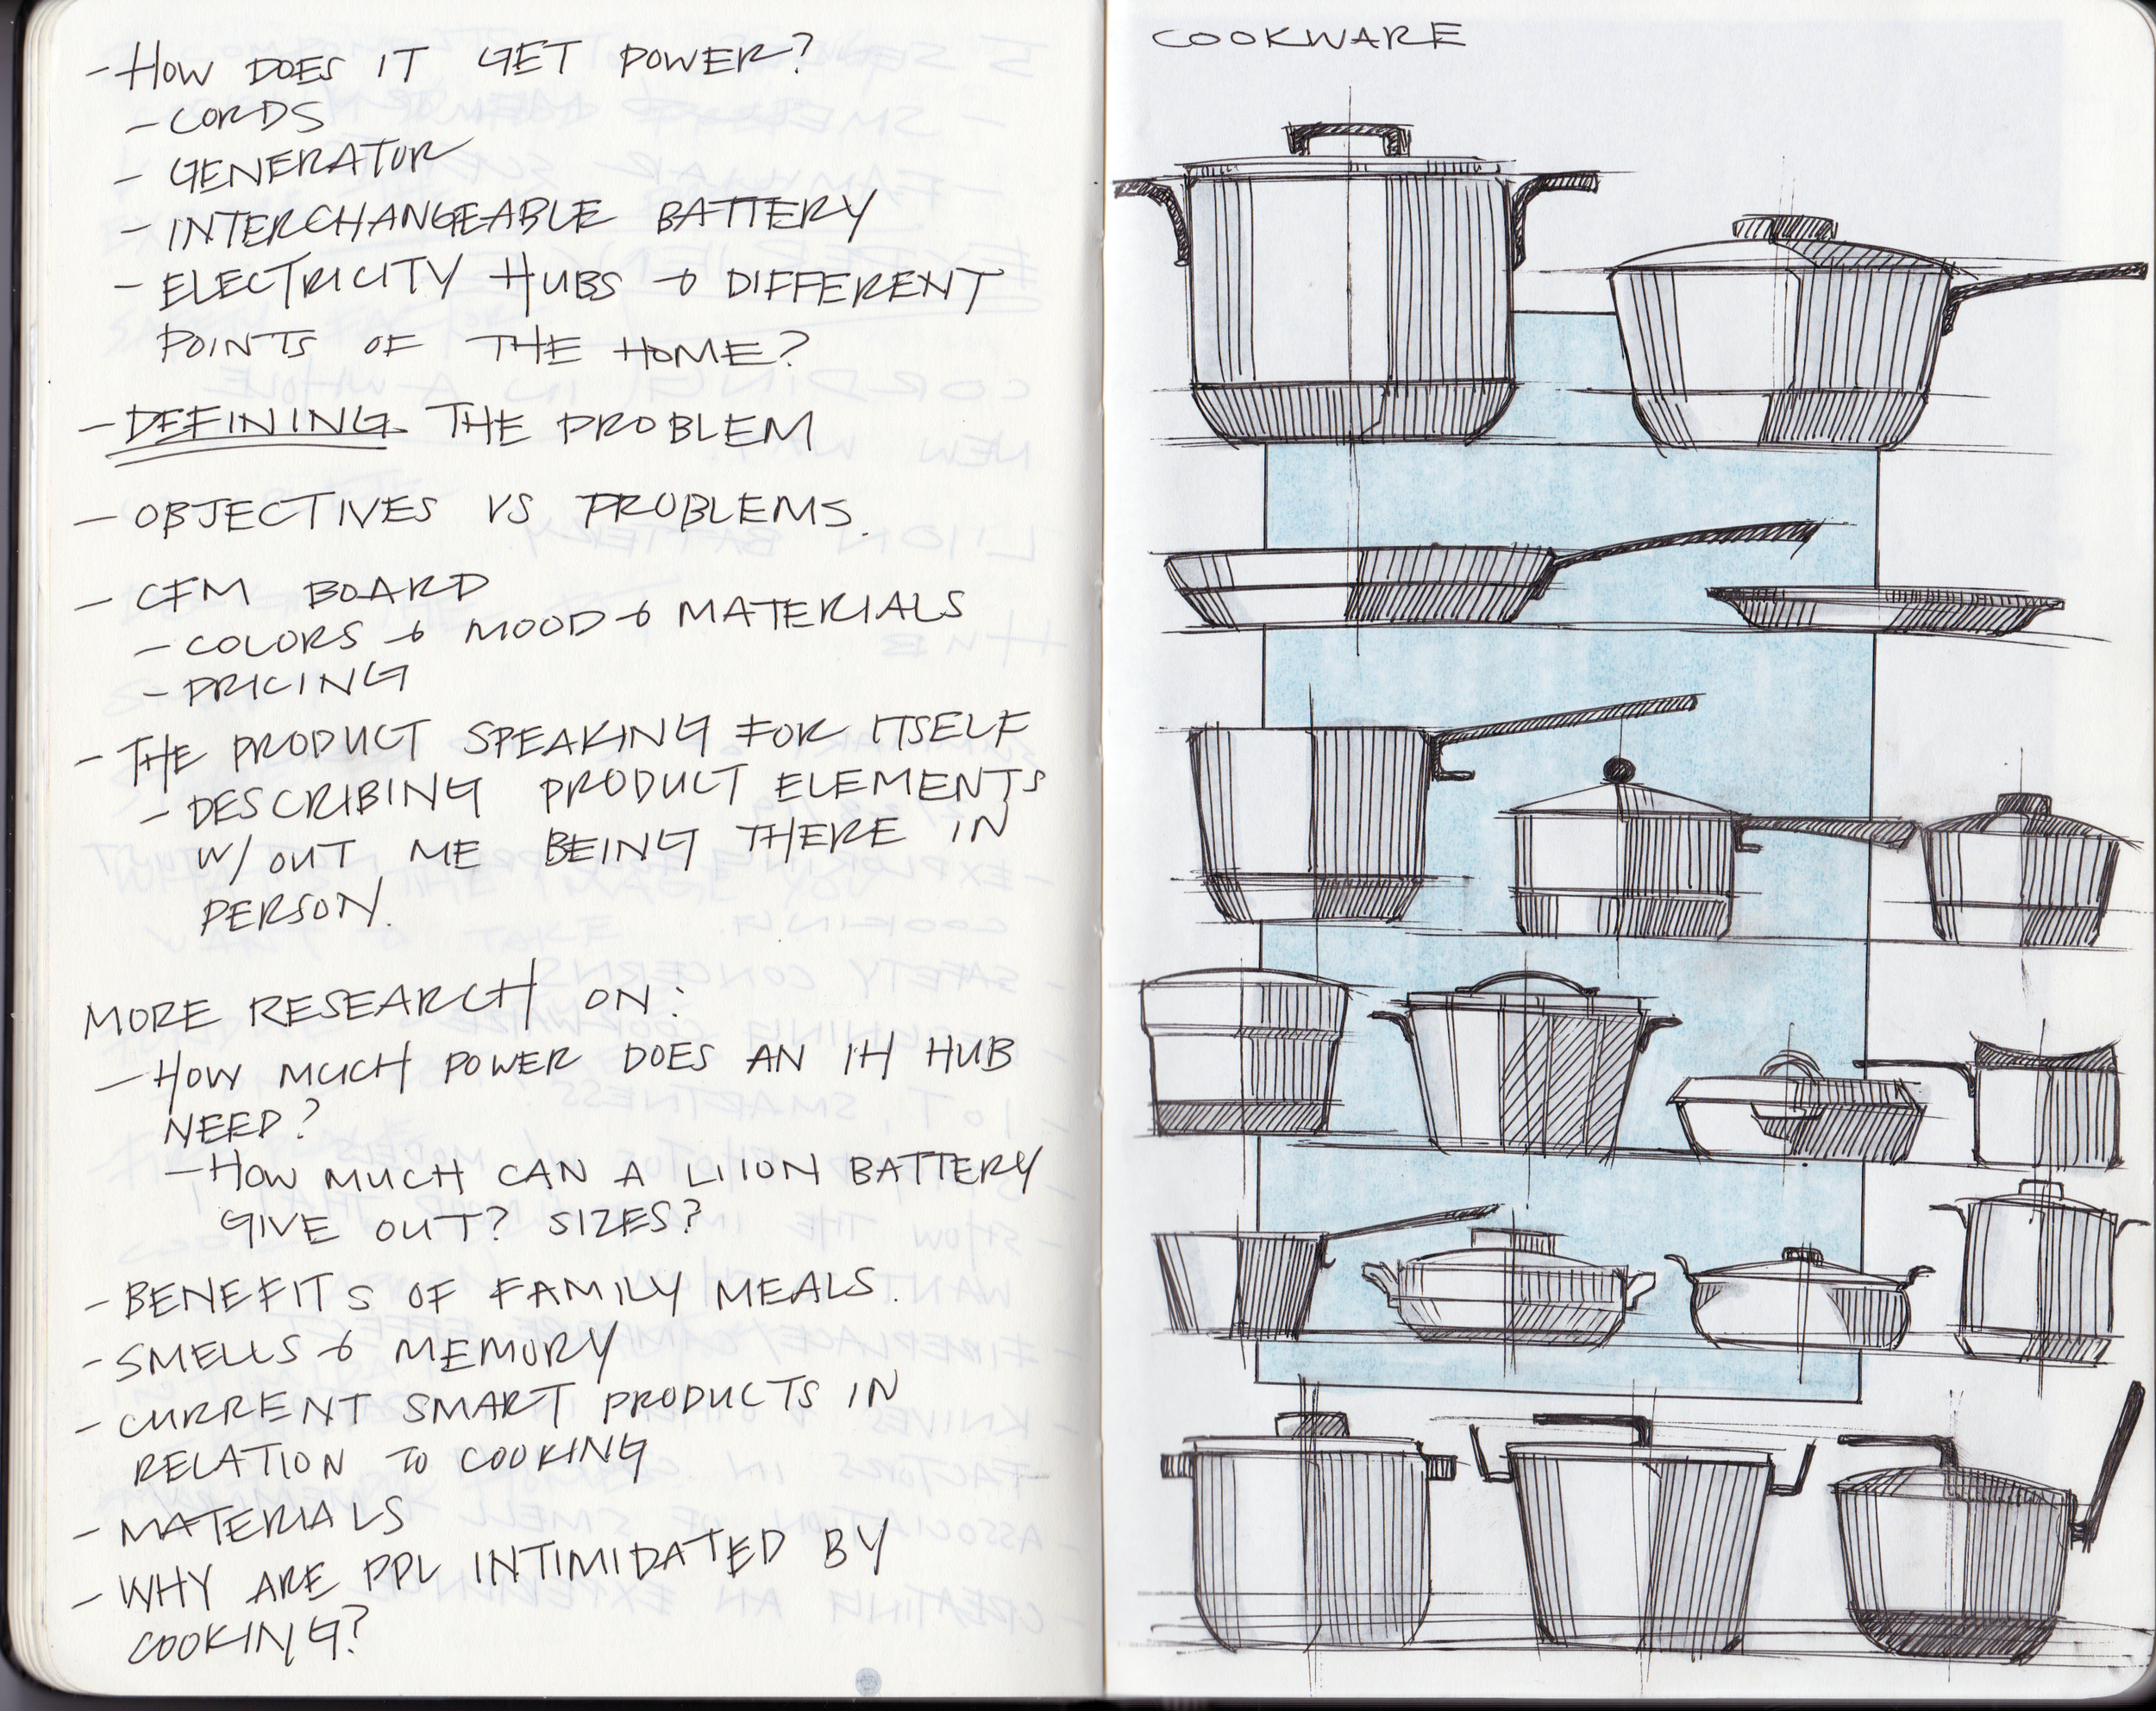 - HOW DOES IT GET POWER?
- CORDS
- GENERATOR
- INTERCHANGEABLE BATTERY
- ELECTRICITY HUBS & DIFFERENT
POINTS OF THE HOME?
- DEFINING THE PROBLEM
- OBJECTIVES VS PROBLEMS.
- CFM BOARD
- COLORS & MOOD & MATERIALS
- PRICING
- THE PRODUCT SPEAKING FOR ITSELF
- DESCRIBING PRODUCT ELEMENTS
W/OUT ME BEING THERE IN
PERSON.
MORE RESEARCH ON:
- HOW MUCH POWER DOES AN IH HUB
NEED?
- HOW MUCH CAN A LIION BATTERY
GIVE OUT? SIZES?
- BENEFITS OF FAMILY MEALS.
- SMELLS & MEMORY
- CURRENT SMART PRODUCTS IN
RELATION TO COOKING
- MATERIALS
- WHY ARE PPL INTIMIDATED BY
COOKING?
COOKWARE